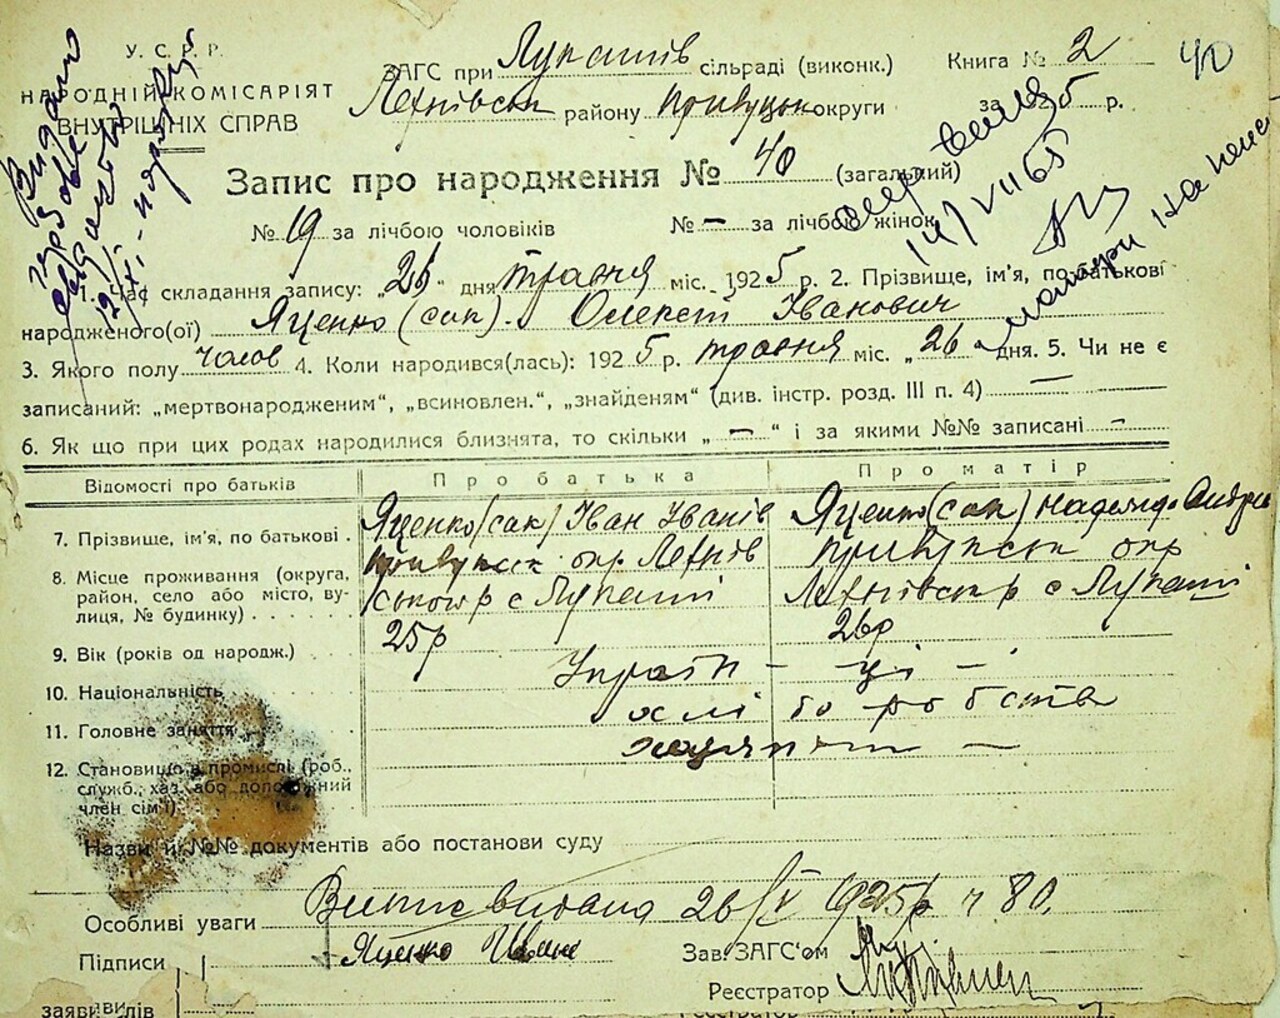 У. С. Р. Р.
НАРОДНІЙ КОМІСАРІЯТ
ВНУТРІШНІХ СПРАВ
Видано
ЗАГС при Лукашів сільраді (виконк.)
Книга № 2
40
району Прилуцьк округи
за 1925 р.
Запис про народження № 40 (загальний)
№ 19 за лічбою чоловіків
№ — за лічбою жінок
1. Час складання запису: „26“ дня травня міс. 1925 р. 2. Прізвище, ім'я, по батькові
народженого(ої) Яценко (сак). Олексій Іванович
3. Якого полу чолов 4. Коли народився(лась): 1925 р. травня міс. „26“ дня. 5. Чи не є
записаний: „мертвонародженим“, „всиновлен.“, „знайденям“ (див. інстр. розд. III п. 4) —
6. Як що при цих родах народилися близнята, то скільки „—“ і за якими №№ записані —
Відомості про батьків
Про батька
Про матір
7. Прізвище, ім'я, по батькові
Яценко (сак) Іван Іванів
Яценко (сак) Надежда
8. Місце проживання (округа,
район, село або місто, ву-
лиця, № будинку)
Прилуцьк окр
с Лукаші
Прилуцьк окр
с Лукаші
9. Вік (років од народж.)
25р
26р
10. Національність
Україн — ці —
11. Головне заняття
хлі бо робств
12. Становищо в промислі (роб.,
служб., хаз. або допоміжний
член сім'ї)
Назви й №№ документів або постанови суду
Особливі уваги
видана 26/V 1925р ч 80.
Підписи
Яценко Иван
Зав. ЗАГС'ом
Реєстратор
заяви